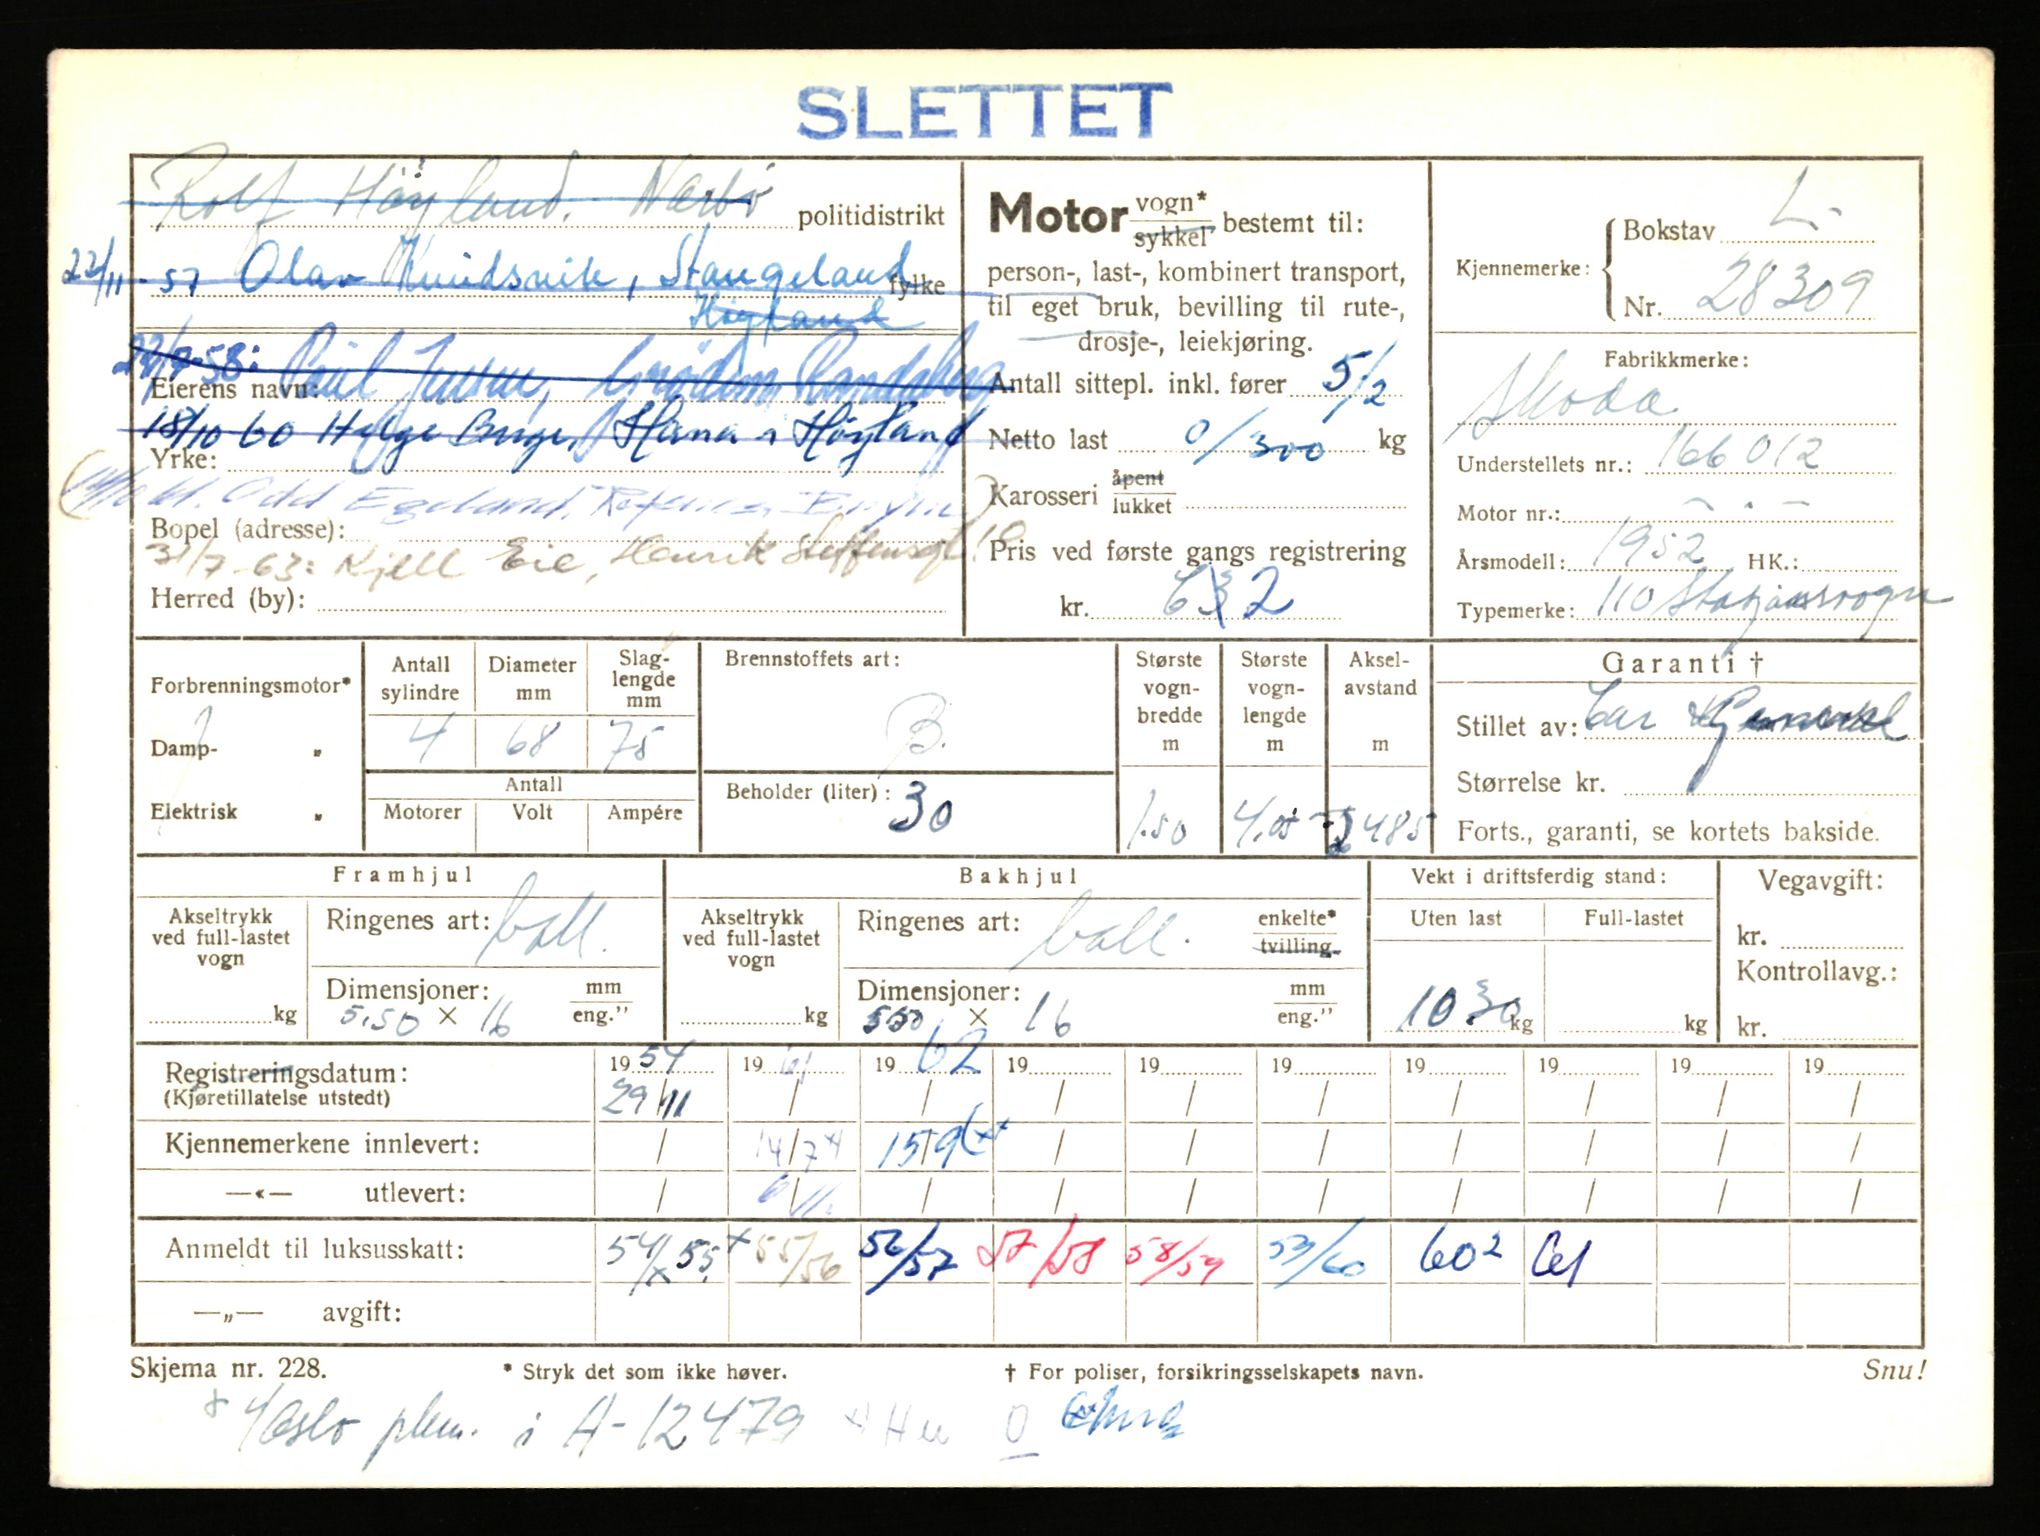 SLETTET
Rolf Høyland. Nærbø politidistrikt
22/11-57 Olav Knudsvik, Stangeland fylke
Høyland
Eierens navn:
18/10 60 Helge Berge, Hana i Høyland
Yrke:
Odd Egeland,
Bopel (adresse):
31/7-63: Kjell Eie, Henrik Steffensgt. 10
Herred (by):
Motor vogn* sykkel bestemt til:
person-, last-, kombinert transport,
til eget bruk, bevilling til rute-,
drosje-, leiekjøring.
Antall sittepl. inkl. fører 5/2
Netto last 0/300 kg
Karosseri åpent lukket
Pris ved første gangs registrering
kr.
Kjennemerke: Bokstav L-
Nr. 28309
Fabrikkmerke:
Skoda
Understellets nr.: 166012
Motor nr.: - " -
Årsmodell: 1952 HK.:
Typemerke: 110 Stasjonsvogn
Forbrenningsmotor*
Damp- „
Elektrisk „
Antall sylindre 4
Diameter mm 68
Slag-lengde mm 75
Antall
Motorer Volt Ampére
Brennstoffets art: B.
Beholder (liter): 30
Største vogn-bredde m 1.50
Største vogn-lengde m 4.05
Aksel-avstand m 2485
Garanti †
Stillet av:
Størrelse kr.
Forts., garanti, se kortets bakside.
Framhjul
Akseltrykk ved full-lastet vogn kg
Ringenes art: ball.
Dimensjoner: mm eng."
5.50 × 16
Bakhjul
Akseltrykk ved full-lastet vogn kg
Ringenes art: ball. enkelte* tvilling.
Dimensjoner: mm eng."
550 × 16
Vekt i driftsferdig stand:
Uten last Full-lastet
1030 kg kg
Vegavgift:
kr.
Kontrollavg.:
kr.
Registreringsdatum: 1954 1961 1962 19 19 19 19 19 19 19
(Kjøretillatelse utstedt) 29/11 / / / / / / / / /
Kjennemerkene innlevert: / 14/7 x 15/9 xx / / / / / / /
—«— utlevert: / 6/11. / / / / / / / /
Anmeldt til luksusskatt: 54/55 x 55/56 56/57 57/58 58/59 59/60 60² 61
—„— avgift:
Skjema nr. 228. * Stryk det som ikke høver. † For poliser, forsikringsselskapets navn. Snu!
i A-12479